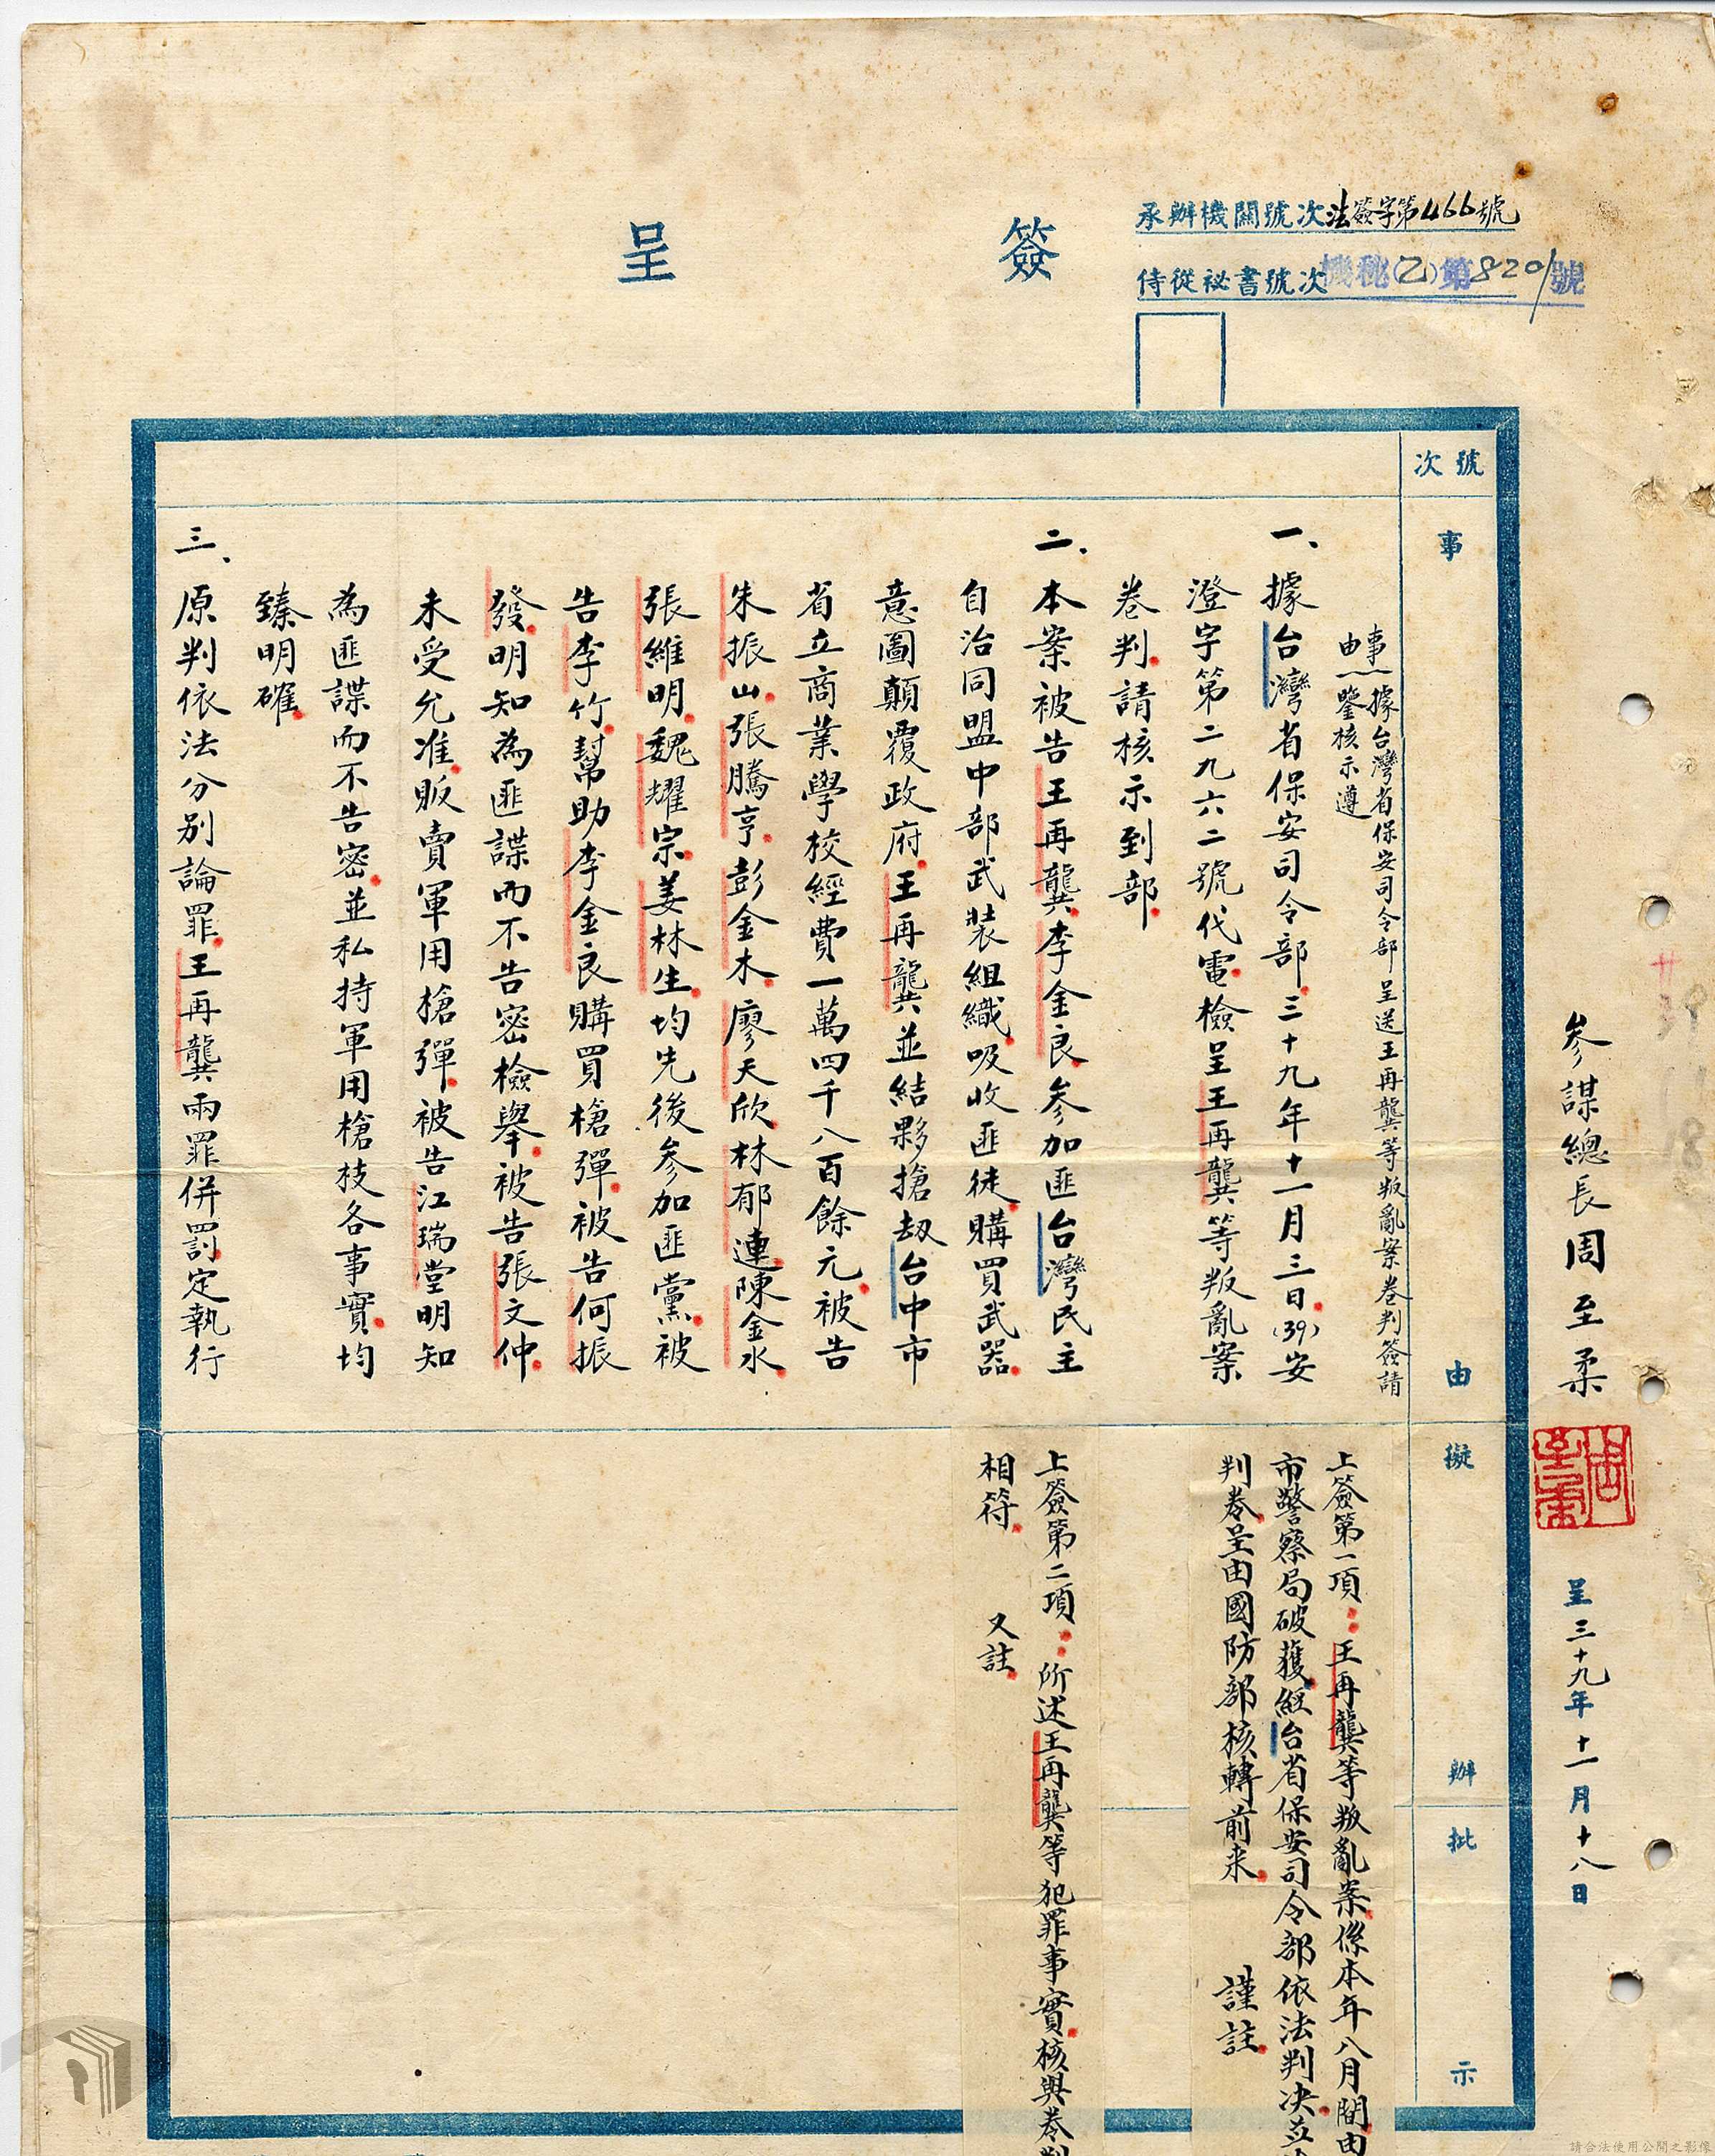 簽呈
承辦機關號次法簽字第466號
侍從祕書號次機秘(乙)第8201號
參謀總長周至柔
周至柔
呈三十九年十一月十八日
號次
事由
擬辦
批示
事由(一)據台灣省保安司令部呈送王再龔等叛亂案卷判簽請
鑒核示遵
一、據台灣省保安司令部三十九年十一月三日(39)安
澄字第二九六二號代電檢呈王再龔等叛亂案
卷判請核示到部
二、本案被告王再龔李金良參加匪台灣民主
自治同盟中部武裝組織吸收匪徒購買武器
意圖顛覆政府王再龔並結夥搶劫台中市
省立商業學校經費一萬四千八百餘元被告
朱振山張騰亨彭金木廖天欣林郁連陳金水
張維明魏耀宗姜林生均先後參加匪黨被
告李竹幫助李金良購買槍彈被告何振
發明知為匪諜而不告密檢舉被告張文仲
未受允准販賣軍用槍彈被告江瑞堂明知
為匪諜而不告密並私持軍用槍枝各事實均
臻明確
三、原判依法分別論罪王再龔兩罪併罰定執行
上簽第一項：王再龔等叛亂案係本年八月間由
市警察局破獲經台省保安司令部依法判決並
判卷呈由國防部核轉前來 謹註
上簽第二項：所述王再龔等犯罪事實核與卷判
相符 又註
請合法使用公開之影像